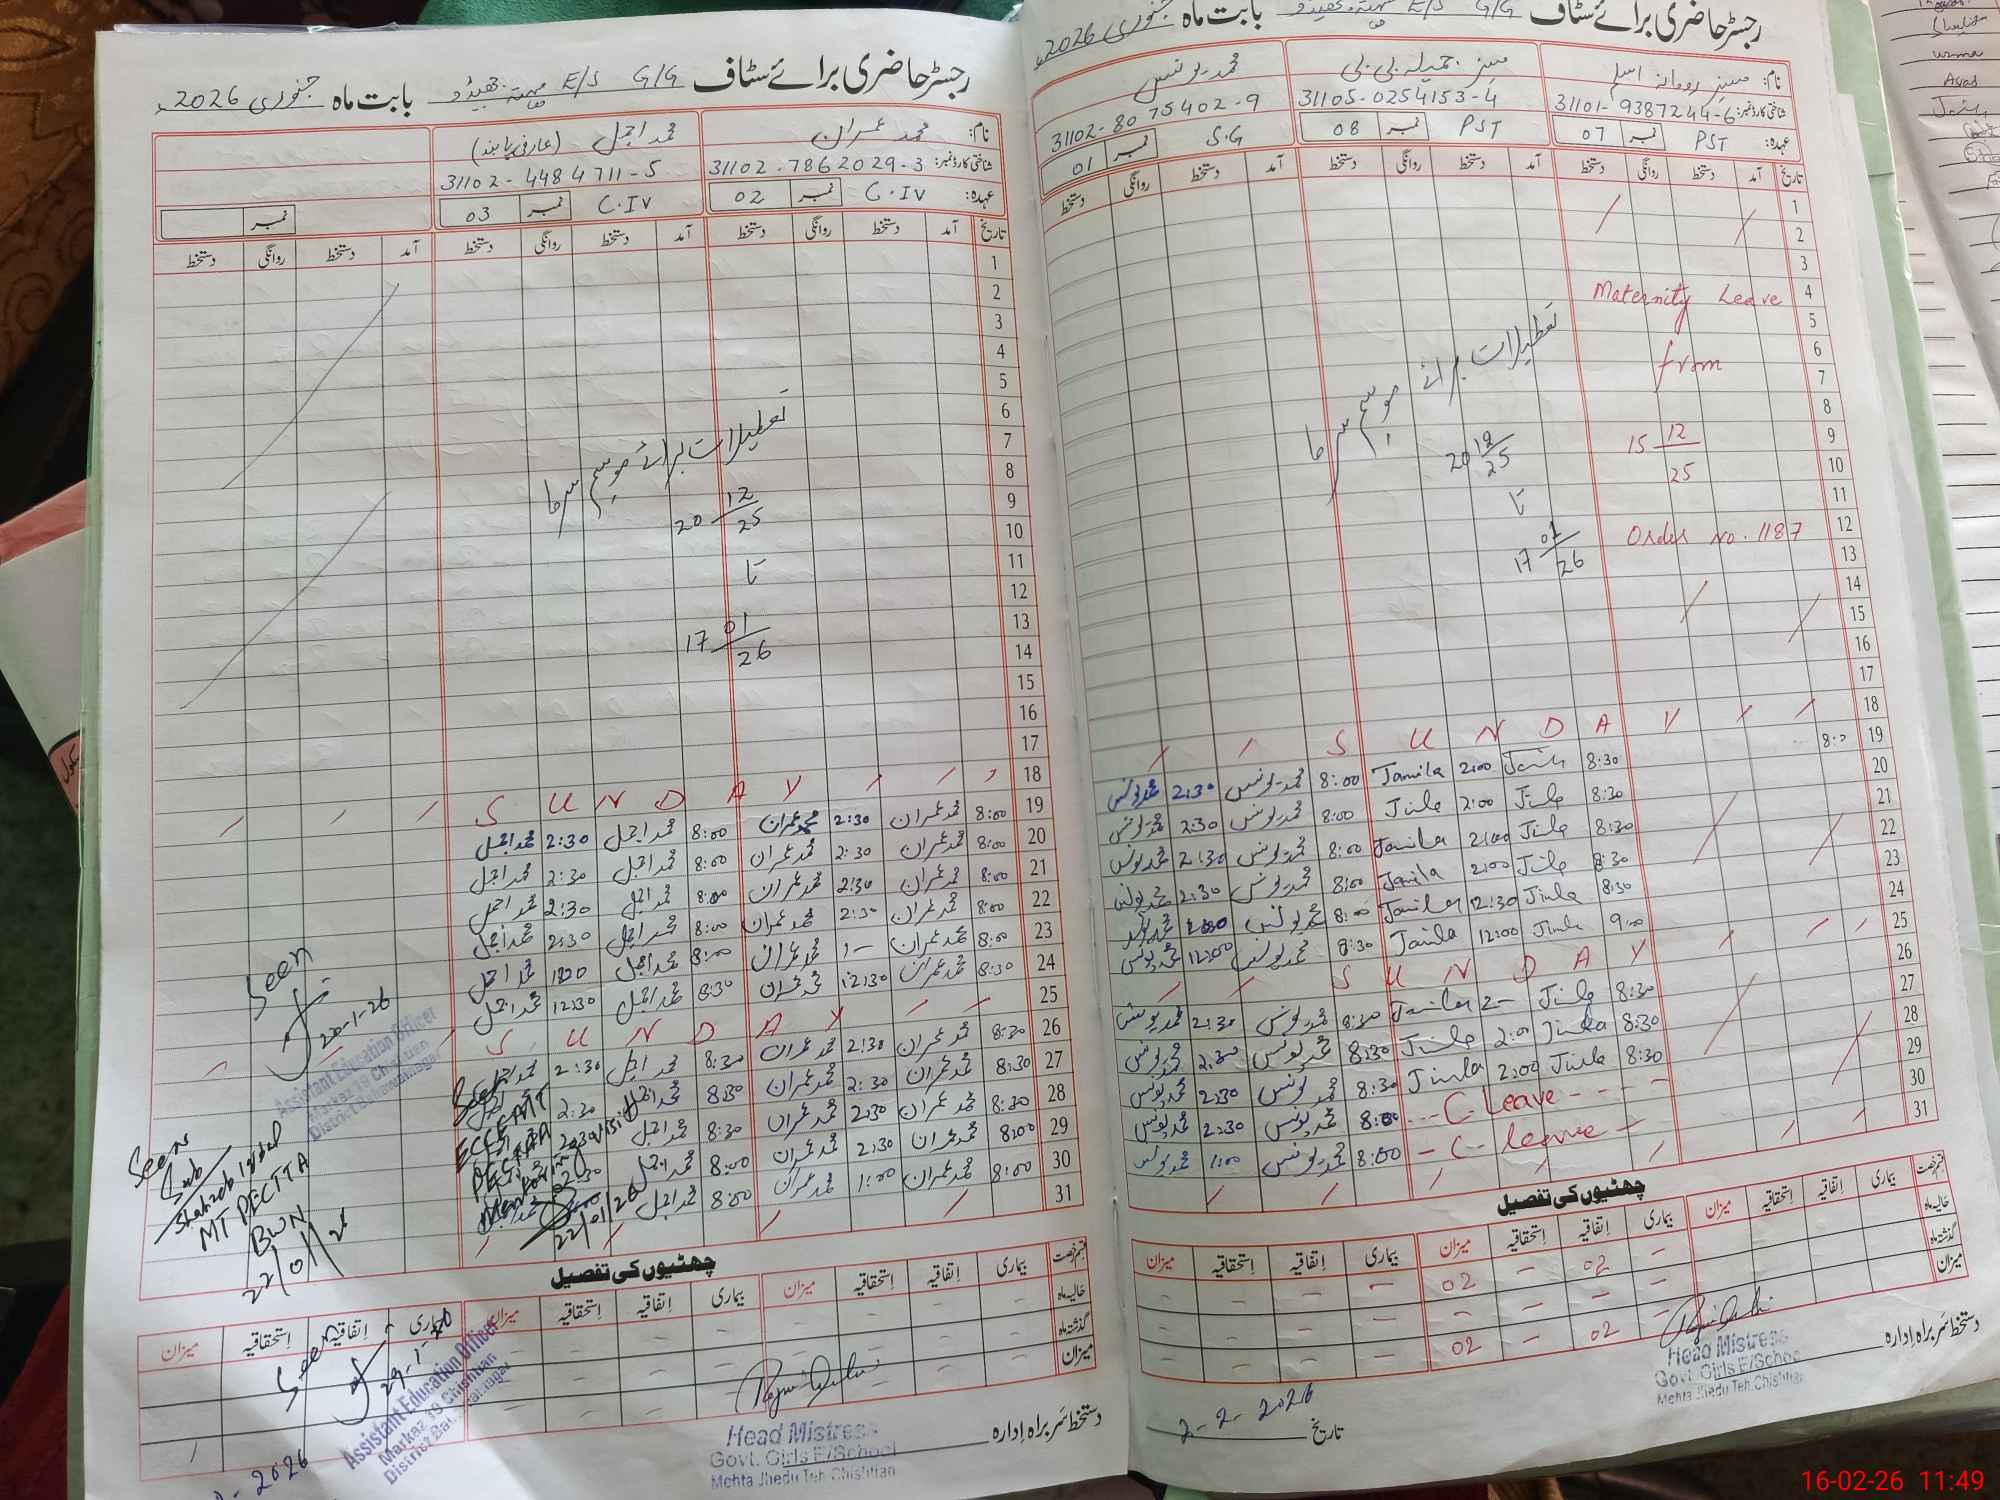 رجسٹر حاضری برائے سٹاف G/G E/S مہتہ جھیڈو بابت ماہ جنوری 2026ء
نام: مسز رومانہ اسلم
مسز جمیلہ بی بی
محمد یونس
شناختی کارڈ نمبر: 31101-9387244-6
31105-0254153-4
31102-8075402-9
عہدہ: PST نمبر 07
PST نمبر 08
S.G نمبر 01
تاریخ آمد دستخط روانگی دستخط آمد دستخط روانگی دستخط آمد دستخط روانگی دستخط
1
2
3
4 Maternity Leave
5
6 from
7
8
9 15 12/25
10
11
12 Order No. 1187
13
14
15
16
17
تعطیلات برائے موسم سرما
20 12/25
تا
17 01/26
18 S U N D A Y
19 8:30 2:00 Jamila 8:00 محمد یونس 2:30 محمد یونس
20 8:30 2:00 8:00 محمد یونس 2:30 محمد یونس
21 8:30 2:00 Jamila 8:00 محمد یونس 2:30 محمد یونس
22 8:30 2:00 Jamila 8:00 محمد یونس 2:30 محمد یونس
23 8:30 12:30 Jamila 8:00 محمد یونس
24 9:00 12:00 Jamila 8:30 محمد یونس 12:00 محمد یونس
25 S U N D A Y
26 8:30 2- Jamila 8:30 محمد یونس 2:30 محمد یونس
27 8:30 2:00 8:30 محمد یونس 2:30 محمد یونس
28 8:30 2:00 8:30 محمد یونس 2:30 محمد یونس
29 C. Leave 8:00 محمد یونس 2:30 محمد یونس
30 C. leave 8:00 محمد یونس 1:00 محمد یونس
31
چھٹیوں کی تفصیل
قسم رخصت بیماری اتفاقیہ استحقاقیہ میزان بیماری اتفاقیہ استحقاقیہ میزان بیماری اتفاقیہ استحقاقیہ میزان
حالیہ ماہ - 02 - 02
گذشتہ ماہ
میزان 02 02
دستخط سربراہ ادارہ
Head Mistress
Govt. Girls E/School
Mehta Jhedu Teh. Chishtian
تاریخ 2-2-2026
رجسٹر حاضری برائے سٹاف G/G E/S مہتہ جھیڈو بابت ماہ جنوری 2026ء
نام: محمد عمران
محمد اجمل (عارفی پابند)
شناختی کارڈ نمبر: 31102-7862029-3
31102-4484711-5
عہدہ: C.IV نمبر 02
C.IV نمبر 03
نمبر
تاریخ آمد دستخط روانگی دستخط آمد دستخط روانگی دستخط آمد دستخط روانگی دستخط
1
2
3
4
5
6
7
8
9
10
11
12
13
14
15
16
17
تعطیلات برائے موسم سرما
20 12/25
تا
17 01/26
18 S U N D A Y
19 8:00 محمد عمران 2:30 محمد عمران 8:00 محمد اجمل 2:30 محمد اجمل
20 8:00 محمد عمران 2:30 محمد عمران 8:00 محمد اجمل 2:30 محمد اجمل
21 8:00 محمد عمران 2:30 محمد عمران 8:00 محمد اجمل 2:30 محمد اجمل
22 8:00 محمد عمران 2:30 محمد عمران 8:00 محمد اجمل 2:30 محمد اجمل
23 8:00 محمد عمران 1- محمد عمران 8:00 محمد اجمل محمد اجمل
24 8:30 محمد عمران 12:30 محمد عمران 8:30 محمد اجمل 12:30 محمد اجمل
25 S U N D A Y
26 8:30 محمد عمران 2:30 محمد عمران 8:30 محمد اجمل 2:30 محمد اجمل
27 8:30 محمد عمران 2:30 محمد عمران 8:30 محمد اجمل 2:30
28 8:30 محمد عمران 2:30 محمد عمران 8:30 محمد اجمل
29 8:00 محمد عمران 2:30 محمد عمران 8:00 محمد اجمل
30 8:00 محمد عمران 1:00 محمد عمران 8:00 محمد اجمل
31
Seen
20-1-26
Assistant Education Officer
Markaz 19 Chishtian
District Bahawalnagar
Seen
Shahzeb Iqbal
MT PECTTA
BWN
22/01/26
22/01/26
چھٹیوں کی تفصیل
قسم رخصت بیماری اتفاقیہ استحقاقیہ میزان بیماری اتفاقیہ استحقاقیہ میزان بیماری اتفاقیہ استحقاقیہ میزان
حالیہ ماہ
گذشتہ ماہ
میزان
Seen
Assistant Education Officer
Markaz 19 Chishtian
دستخط سربراہ ادارہ
Head Mistress
Govt. Girls E/School
Mehta Jhedu Teh. Chishtian
2026
16-02-26 11:49